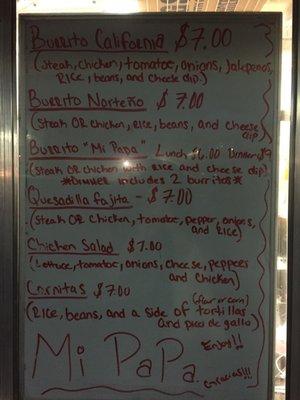 Burrito California $7.00
(Steak, Chicken, tomatoe, onions, Jalepeños,
Rice, beans, and cheese dip.)
Burrito Norteño $7.00
(Steak OR Chicken, Rice, beans, and cheese
dip)
Burrito "Mi Papa" Lunch $6.00 Dinner $9
(Steak OR chicken with Rice and cheese dip)
*Dinner includes 2 burritos*
Quesadilla fajita - $7.00
(Steak OR Chicken, tomatoe, pepper, onions,
and Rice)
Chicken Salad $7.00
(Lettuce, tomatoe, onions, cheese, peppers
and Chicken)
Carnitas $7.00
(flour or corn)
(Rice, beans, and a side of tortillas
and pico de gallo)
Enjoy!!
Mi PaPa.
Gracias!!!